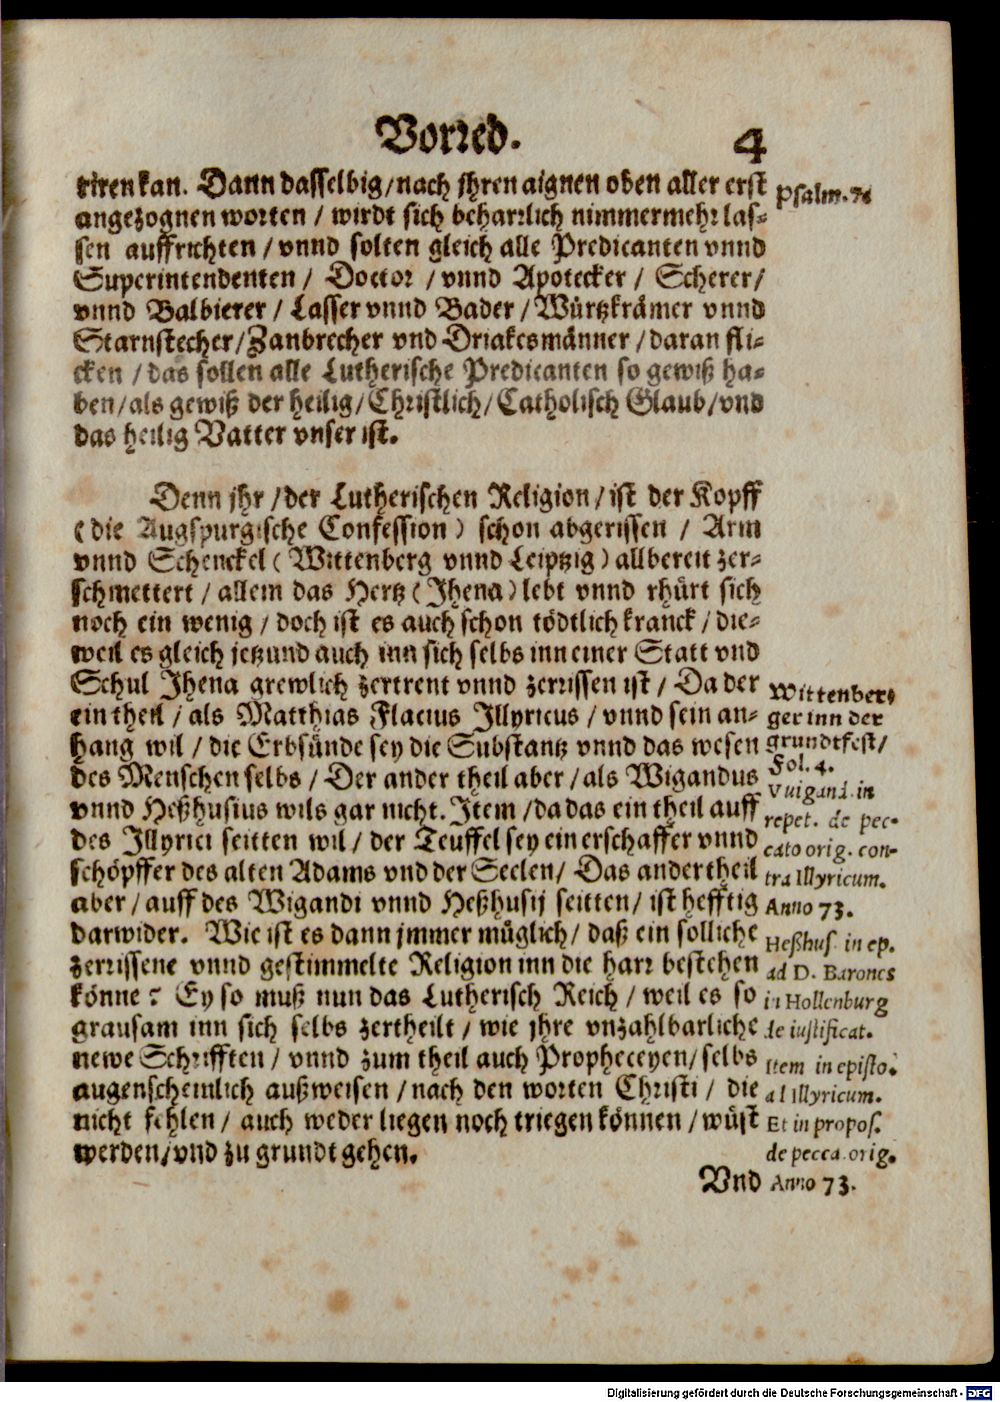 Vorred. 4
riren kan. Dann dasselbig/nach jhren aignen oben aller erst
angezognen worten / wirdt sich beharrlich nimmermehr las-
sen auffrichten / vnnd solten gleich alle Predicanten vnnd
Superintendenten / Doctor / vnnd Apotecker / Scherer/
vnnd Balbierer / Lasser vnnd Bader / Würtzkrämer vnnd
Starnstecher/Zanbrecher vnd Driakesmänner / daran fli-
cken / das sollen alle Lutherische Predicanten so gewiß ha-
ben/als gewiß der heilig/Christlich/Catholisch Glaub/vnd
das heilig Vatter vnser ist.
Psalm. 7
Denn jhr /der Lutherischen Religion/ist der Kopff
(die Augspurgische Confession) schon abgerissen / Arm
vnnd Schenckel (Wittenberg vnnd Leiptzig) allbereit zer-
schmettert / allein das Hertz (Jhena) lebt vnnd rhürt sich
noch ein wenig / doch ist es auch schon tödtlich kranck / die-
weil es gleich jetzund auch inn sich selbs inn einer Statt vnd
Schul Jhena grewlich zertrent vnnd zerrissen ist / Da der
ein theil / als Matthias Flacius Jllyricus / vnnd sein an-
hang wil / die Erbsünde sey die Substantz vnnd das wesen
des Menschen selbs / Der ander theil aber / als Wigandus
vnnd Heßhusius wils gar nicht. Item /da das ein theil auff
des Jllyrici seitten wil / der Teuffel sey ein erschaffer vnnd
schöpffer des alten Adams vnd der Seelen / Das ander theil
aber / auff des Wigandi vnnd Heßhusij seitten / ist hefftig
darwider. Wie ist es dann jmmer müglich / daß ein solliche
zerrissene vnnd gestimmelte Religion inn die harr bestehen
könne? Ey so muß nun das Lutherisch Reich / weil es so
grausam inn sich selbs zertheilt / wie jhre vnzahlbarliche
newe Schrifften / vnnd zum theil auch Propheceyen/ selbs
augenscheinlich außweisen / nach den worten Christi / die
nicht fehlen / auch weder liegen noch triegen können / wüst
werden/vnd zu grundt gehen.
Wittenber-
ger inn der
grundtfest/
Fol. 4.
Vuigand. in
repet. de pec-
cato orig. con-
tra Illyricum.
Anno 73.
Heßhus. in ep.
ad D. Barones
in Hollenburg
de iustificat.
Item in episto.
ad Illyricum.
Et in propos.
de pecca. orig.
Anno 73.
Vnd
Digitalisierung gefördert durch die Deutsche Forschungsgemeinschaft - DFG